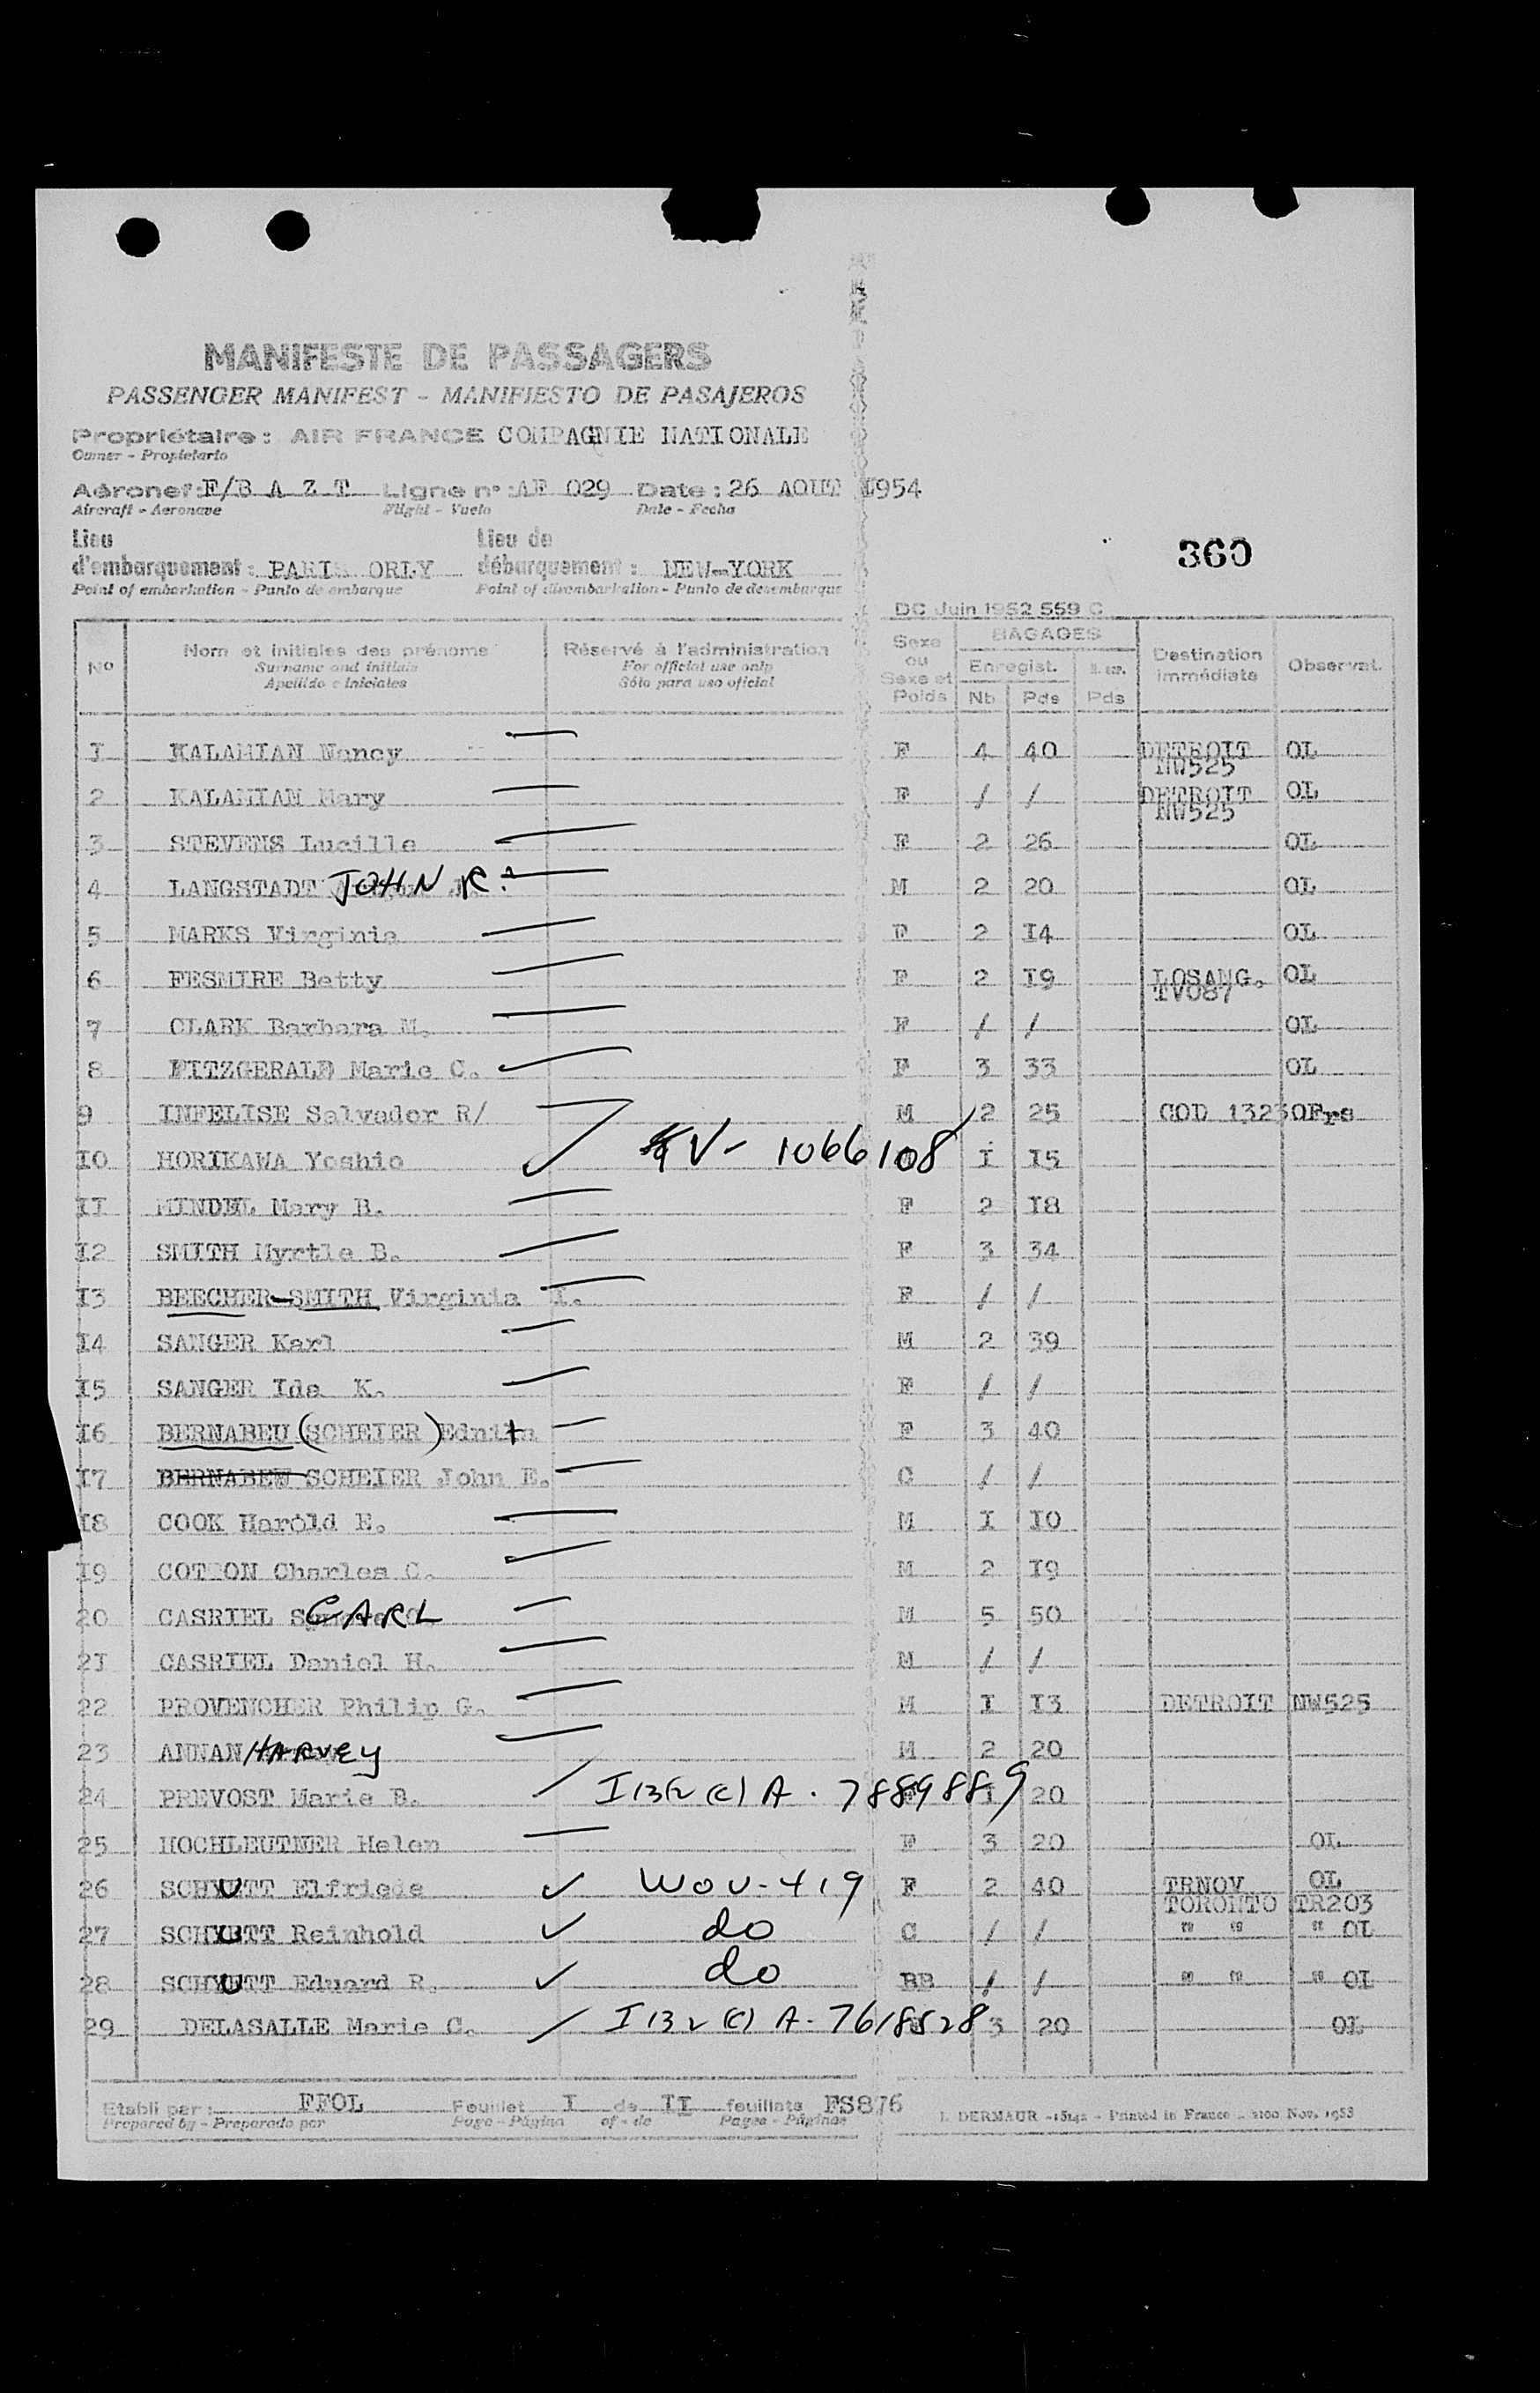 MANIFESTE DE PASSAGERS
PASSENGER MANIFEST - MANIFIESTO DE PASAJEROS
Propriétaire : AIR FRANCE COMPAGNIE NATIONALE
Owner - Propietario
Aéronef : F/B A Z T Ligne n° : AF 029 Date : 26 AOUT I954
Aircraft - Aeronave Flight - Vuelo Date - Fecha
Lieu d'embarquement : PARIS ORLY Lieu de débarquement : NEW-YORK
Point of embarkation - Punto de embarque Point of disembarkation - Punto de desembarque
360
DC Juin 1952 559 C
N° Nom et initiales des prénoms Réservé à l'administration Sexe ou Sexe et Poids BAGAGES Destination immédiate Observat.
Surname and initials For official use only Enregist.
Apellido e iniciales Sólo para uso oficial Nb Pds Pds
I KALAMIAN Nancy F 4 40 DETROIT OL
NW525
2 KALAMIAN Mary F / / DETROIT OL
NW525
3 STEVENS Lucille F 2 26 OL
4 LANGSTADT JOHN R. M 2 20 OL
5 MARKS Virginia F 2 I4 OL
6 FESMIRE Betty F 2 I9 LOSANG. OL
TV087
7 CLARK Barbara M. F / / OL
8 FITZGERALD Marie C. F 3 33 OL
9 INFELISE Salvador R/ M 2 25 COD 13230Frs
IO HORIKAWA Yoshio V- 1066108 I I5
II MINDEL Mary B. F 2 I8
I2 SMITH Myrtle B. F 3 34
I3 BEECHER-SMITH Virginia I. F / /
I4 SANGER Karl M 2 39
I5 SANGER Ida K. F / /
I6 BERNABEU (SCHEIER) Ednita F 3 40
I7 BERNABEW SCHEIER John E. C / /
I8 COOK Harold E. M I IO
I9 COTTON Charles C. M 2 I9
20 CASRIEL CARL M 5 50
2I CASRIEL Daniel H. M / /
22 PROVENCHER Philip G. M I I3 DETROIT NW525
23 ANNAN HARVEY M 2 20
24 PREVOST Marie B. I 132 (c) A. 7889889 I 20
25 HOCHLEUTNER Helen F 3 20 OL
26 SCHUTT Elfriede ✓ WOV-419 F 2 40 TRNOV OL
TORONTO TR203
27 SCHUTT Reinhold ✓ do C / / " " " OL
28 SCHUTT Eduard R. ✓ do BB / / " " " OL
29 DELASALLE Marie C. I 132 (c) A-7618528 3 20 OL
Etabli par : FFOL Feuillet I de II feuillets FS876
Prepared by - Preparado por Page - Página of - de Pages - Páginas
L. DERMAUR - Printed in France - 2100 Nov. 1953